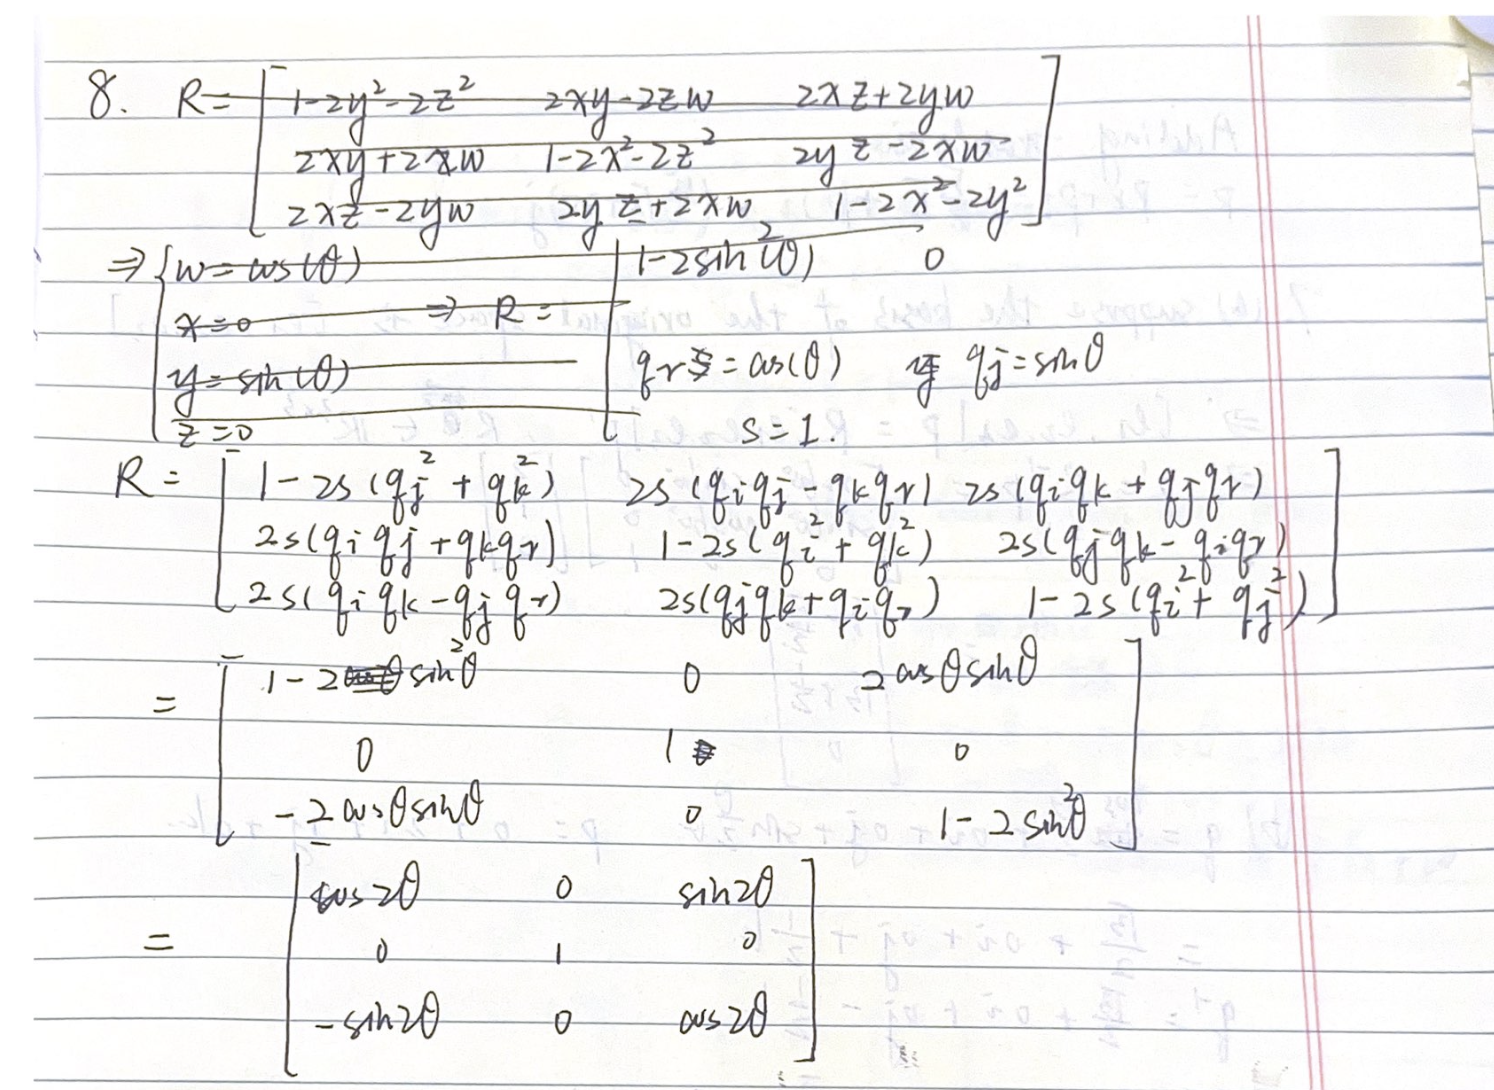 8. R= [ 1-2y²-2z² 2xy-2zw 2xz+2yw
2xy+2zw 1-2x²-2z² 2yz-2xw
2xz-2yw 2yz+2xw 1-2x²-2y² ]
⇒ { w=cos(θ) 1-2sin²(θ) 0
x=0 ⇒ R=
y=sin(θ) qr=cos(θ) qj=sinθ
z=0 s=1.
R= [ 1-2s(qj²+qk²) 2s(qiqj-qkqr) 2s(qiqk+qjqr)
2s(qiqj+qkqr) 1-2s(qi²+qk²) 2s(qjqk-qiqr)
2s(qiqk-qjqr) 2s(qjqk+qiqr) 1-2s(qi²+qj²) ]
= [ 1-2sin²θ 0 2cosθsinθ
0 1 0
-2cosθsinθ 0 1-2sin²θ ]
= [ cos2θ 0 sin2θ
0 1 0
-sin2θ 0 cos2θ ]